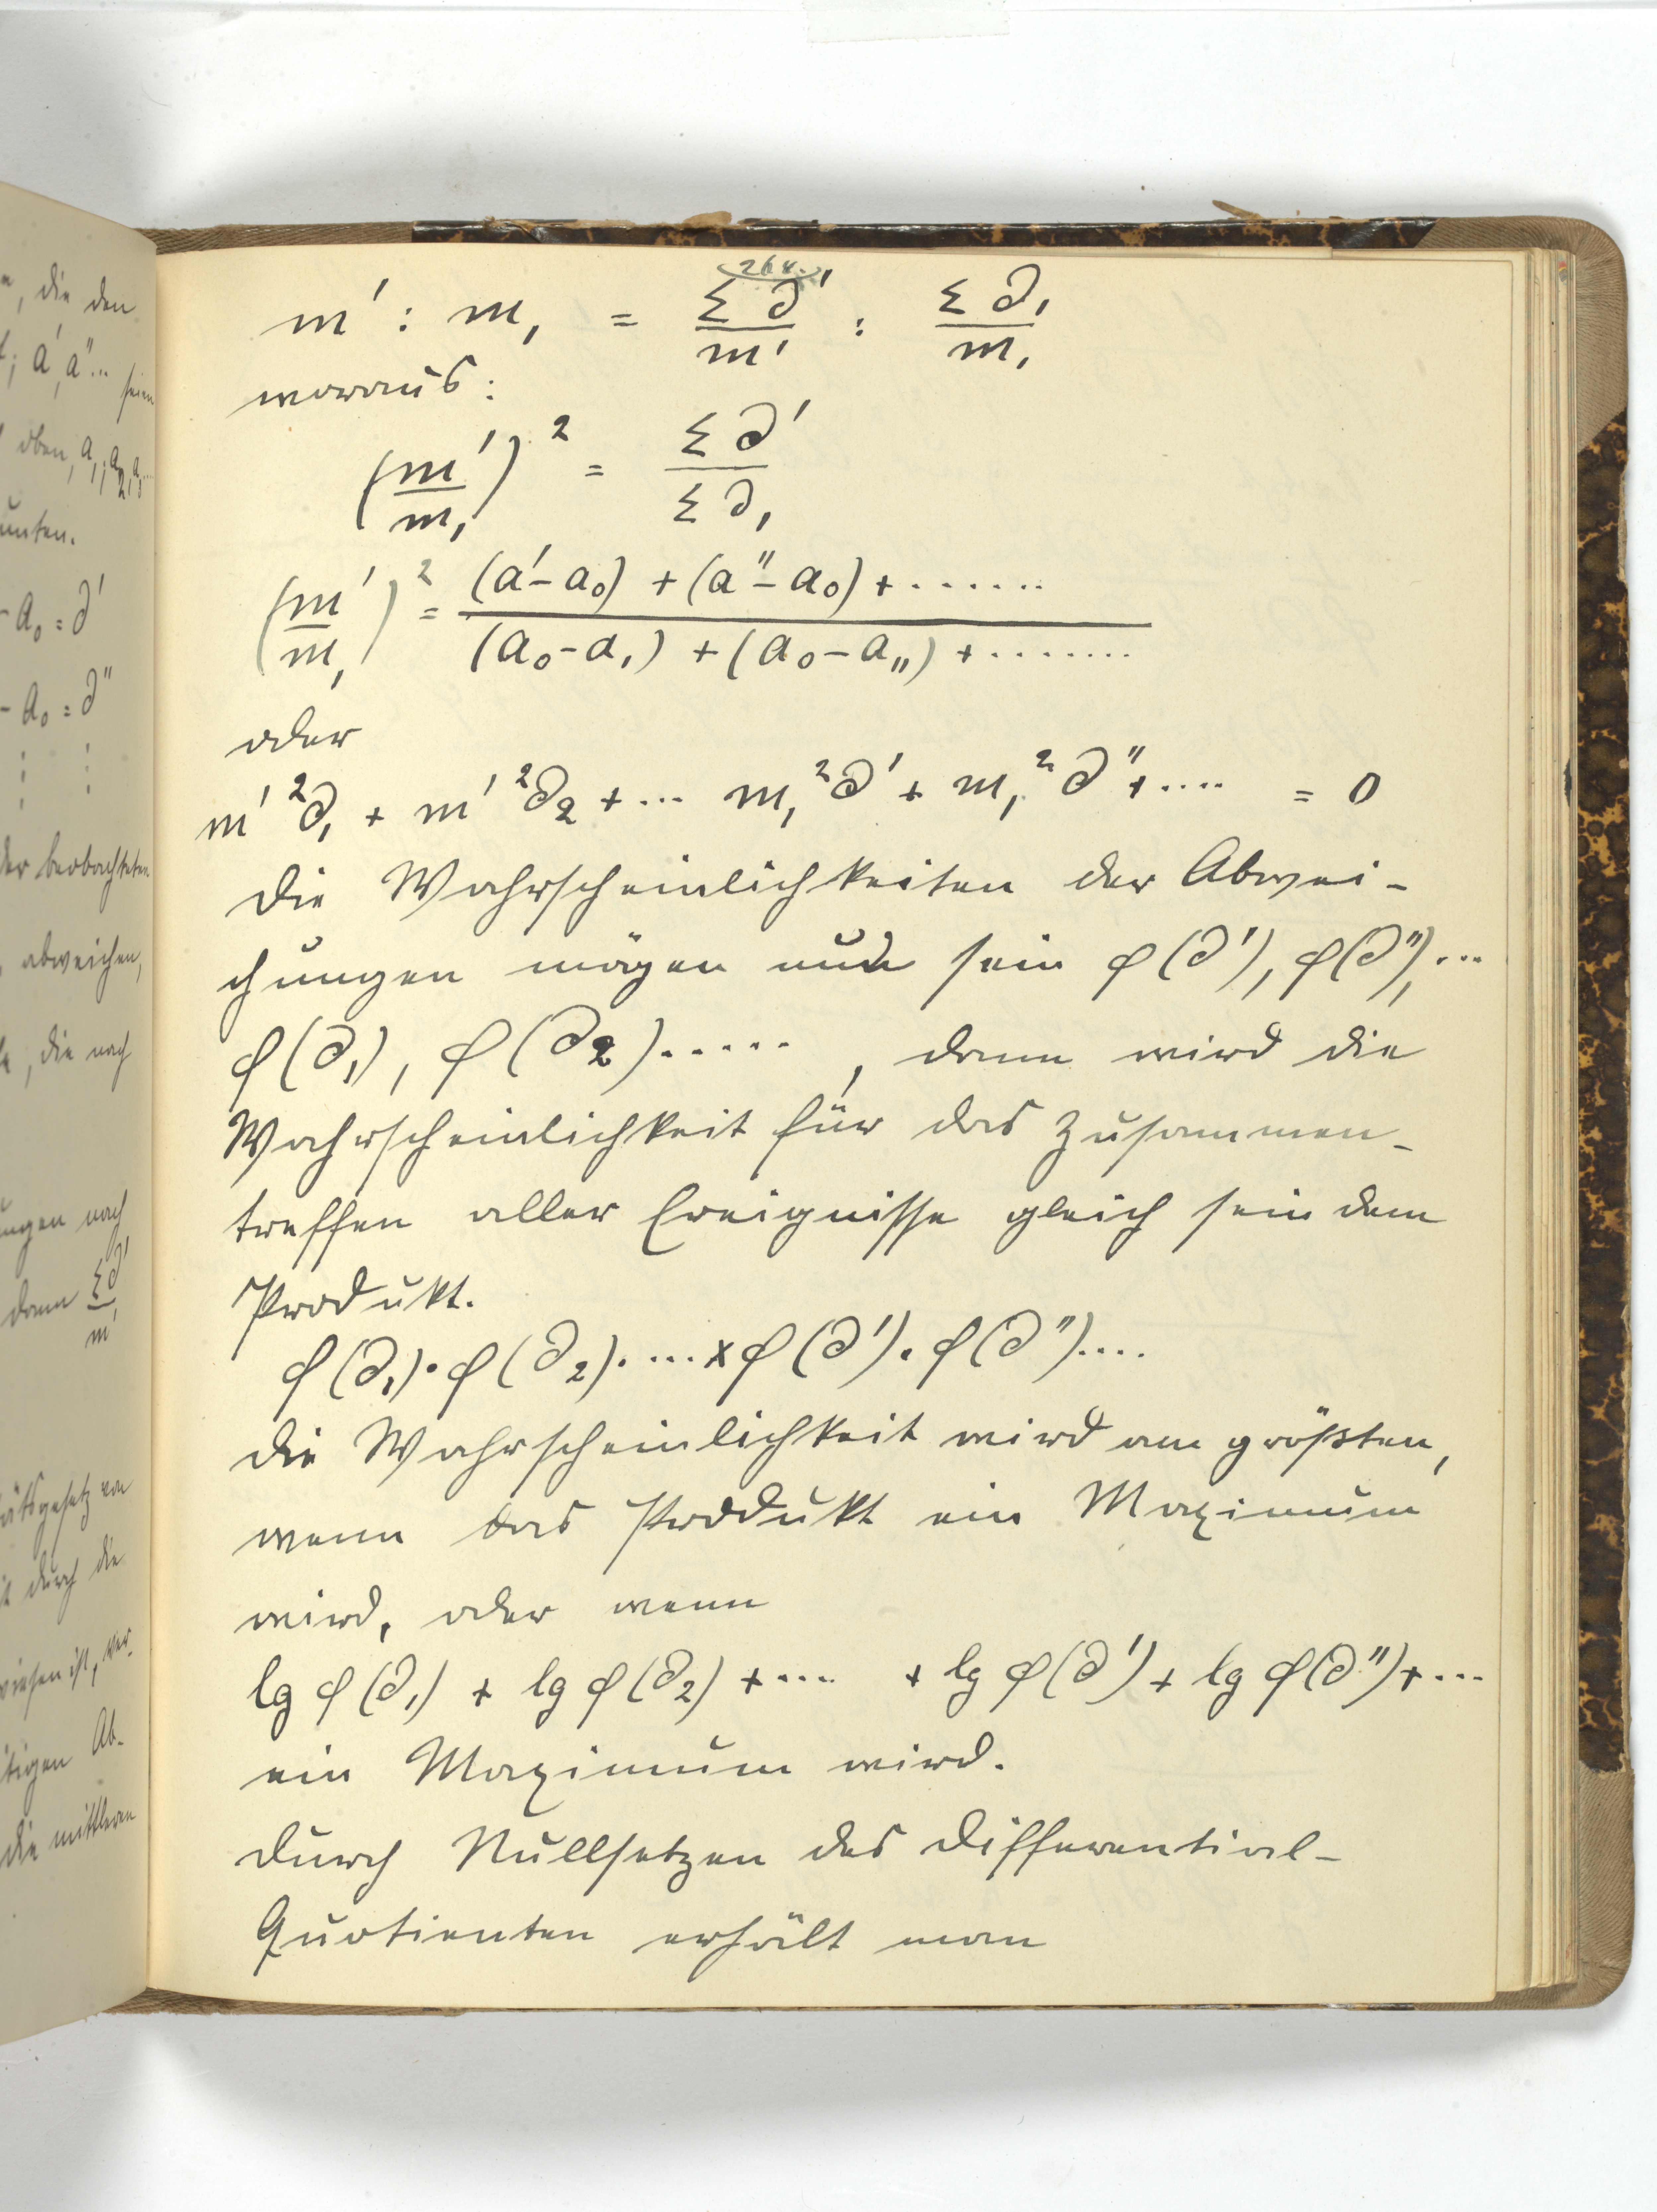 e, die den
t; a', a''... seien
oben, a₁, a₂, a₃...
unten.
- a₀ = ∂'
- a₀ = ∂''
⋮ ⋮
der beobachteten
abweichen,
, die nach
ungen nach
dann Σ∂' / m'
ätsgesetz von
t durch die
wiesen ist, wer-
itigen Ab-
die mittleren
264.
m' : m₁ = Σ∂' / m' : Σ∂₁ / m₁
woraus:
(m' / m₁)² = Σ∂' / Σ∂₁
(m' / m₁)² = (a' - a₀) + (a'' - a₀) + ....... / (a₀ - a₁) + (a₀ - a₁₁) + ........
oder
m'²∂₁ + m'²∂₂ + ... m₁²∂' + m₁²∂'' + .... = 0
Die Wahrscheinlichkeiten der Abwei-
chungen mögen nun sein φ(∂'), φ(∂''), ...
φ(∂₁), φ(∂₂)....., dann wird die
Wahrscheinlichkeit für das Zusammen-
treffen aller Ereignisse gleich sein dem
Produkt.
φ(∂₁)·φ(∂₂)· ... x φ(∂')·φ(∂'')....
Die Wahrscheinlichkeit wird am größten,
wenn das Produkt ein Maximum
wird, oder wenn
lg φ(∂₁) + lg φ(∂₂) + .... + lg φ(∂') + lg φ(∂'') + ...
ein Maximum wird.
Durch Nullsetzen des Differential-
Quotienten erhält man